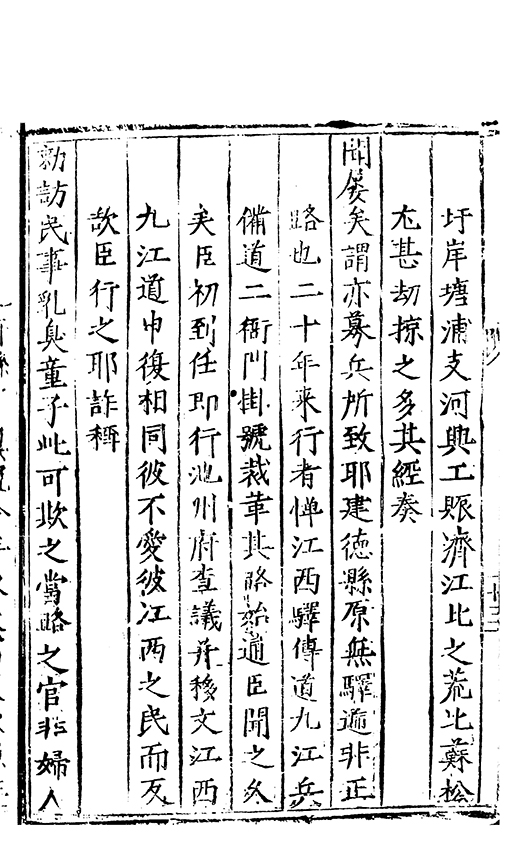 圩岸塘浦支河興工賑濟江北之荒比蘇松
尤甚刧掠之多其經奏
聞屡矣謂亦募兵所致耶建德縣原無驛逓非正
路也二十年来行者憚江西驛傳道九江兵
備道二衙門掛號裁革其路始通臣聞之久
矣臣初到任即行池州府查議并移文江西
九江道中復相同彼不愛彼江西之民而反
欺臣行之耶詐稱
勑訪民事乳臭童子此可欺之當路之官非婦人